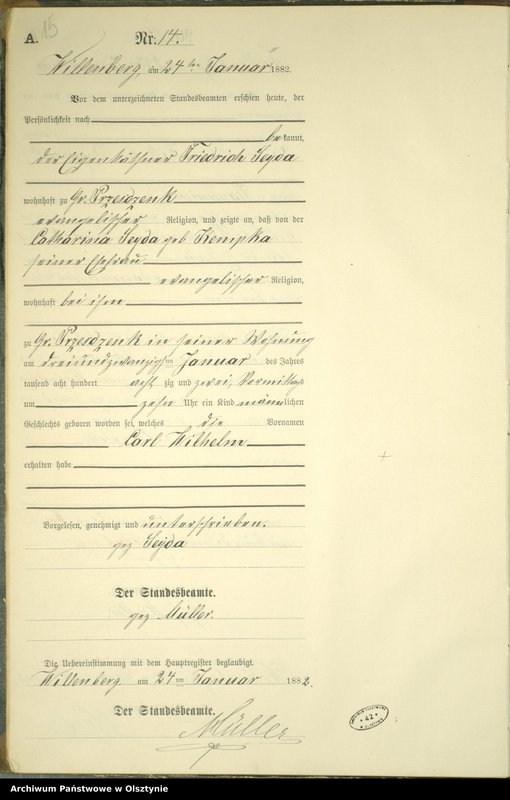 A.
15
Nr. 14.
Willenberg, am 24ten Januar 1882.
Vor dem unterzeichneten Standesbeamten erschien heute, der
Persönlichkeit nach
bekannt,
der Eigenkäthner Friedrich Seyda
wohnhaft zu Gr. Przesdzenk
evangelischer Religion, und zeigte an, daß von der
Catharina Seyda geb Kempka
seiner Ehefrau
evangelischer Religion,
wohnhaft bei ihm
zu Gr. Przesdzenk in seiner Wohnung
am dreiundzwanzigsten Januar des Jahres
tausend acht hundert acht zig und zwei, Vormittags
um zehn Uhr ein Kind männlichen
Geschlechts geboren worden sei, welches die Vornamen
Carl Wilhelm
erhalten habe
Vorgelesen, genehmigt und unterschrieben.
gez Seyda
Der Standesbeamte.
gez Müller.
Die Uebereinstimmung mit dem Hauptregister beglaubigt.
Willenberg am 24ten Januar 1882.
Der Standesbeamte.
Müller
* 42 *
Archiwum Państwowe w Olsztynie